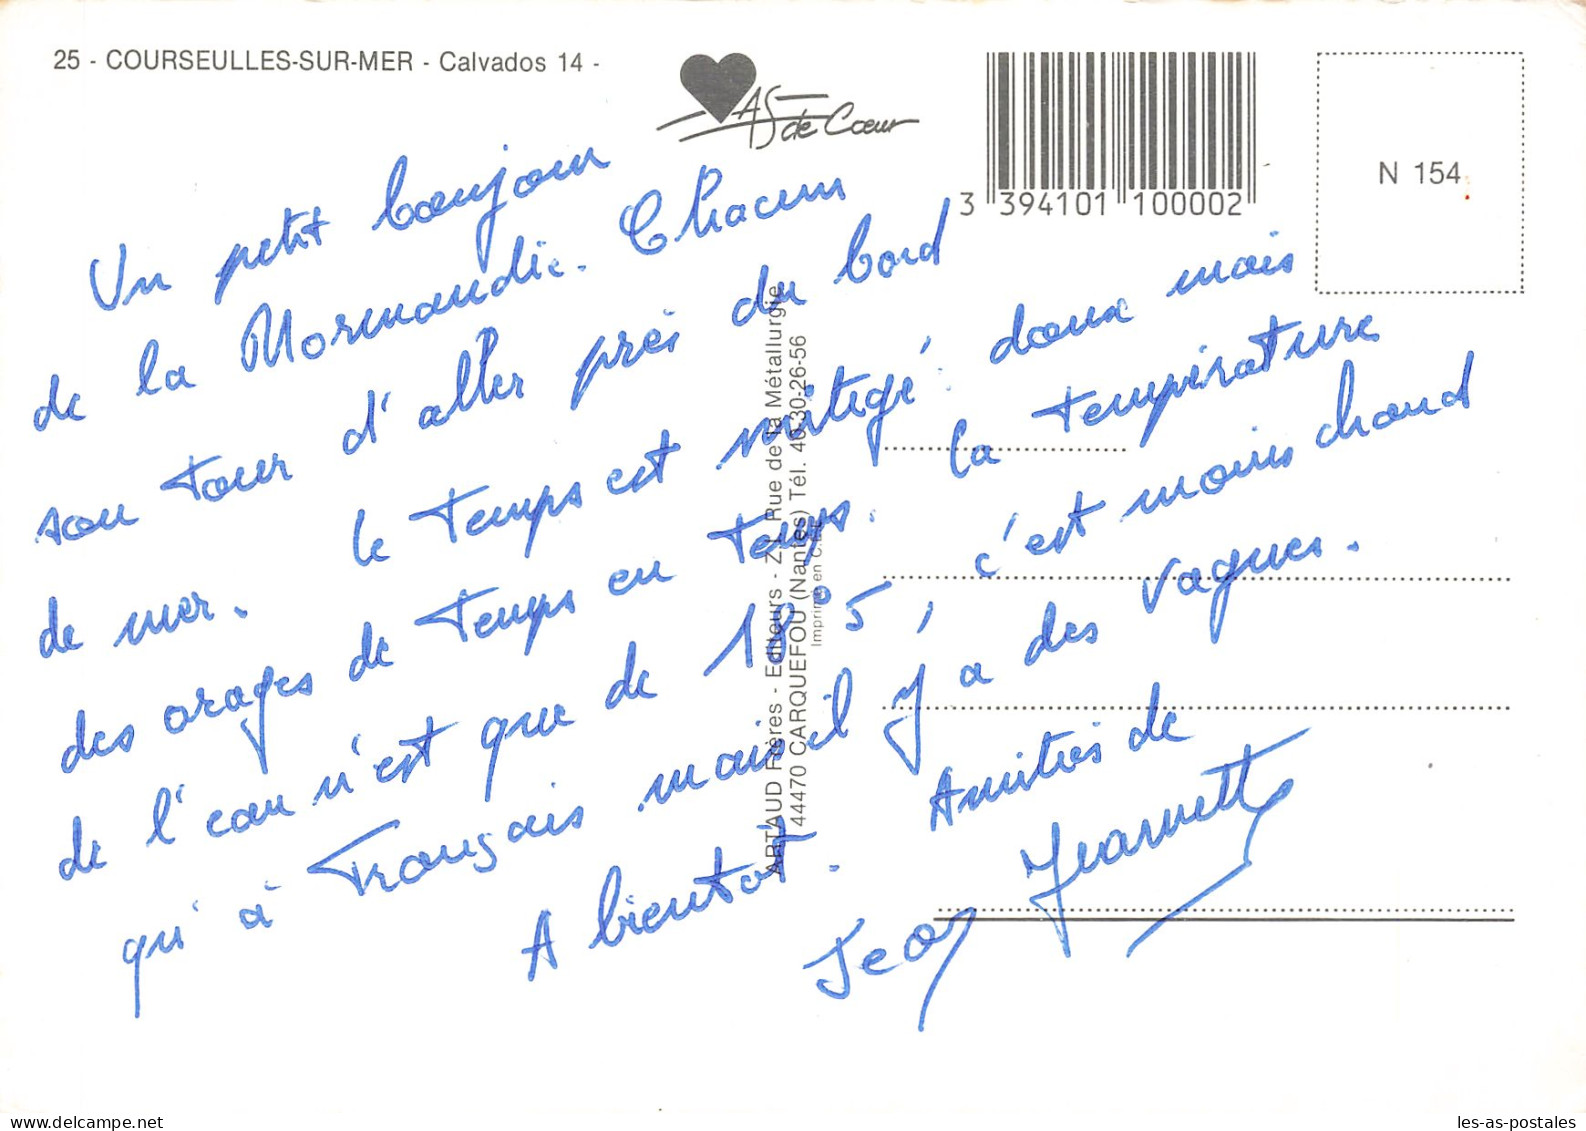 25 - COURSEULLES-SUR-MER - Calvados 14 -
AS de Cœur
3 394101 100002
N 154
Un petit bonjour
de la Normandie. Chacun
son tour d'aller près du bord
de mer. le temps est mitigé : doux mais
des orages de temps en temps. la température
de l'eau n'est que de 18°5, c'est moins chaud
qu'à Français mais il y a des vagues.
A bientôt. Amitiés de
Jean Jeannette
ARTAUD Frères - Editeurs - Z.I. Rue de la Métallurgie
44470 CARQUEFOU (Nantes) Tél. 40-30-26-56
Imprimé en C.E.E.
Delcampe.net
les-as-postales